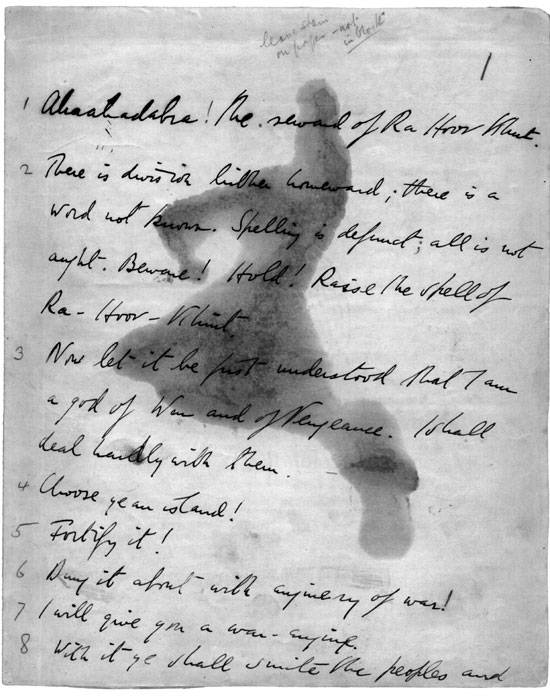 leave stain
on proper - not
in block
1
1 Abrahadabra! the reward of Ra Hoor Khut.
2 There is division hither homeward; there is a
word not known. Spelling is defunct; all is not
aught. Beware! Hold! Raise the spell of
Ra-Hoor-Khuit.
3 Now let it be first understood that I am
a god of War and of Vengeance. I shall
deal hardly with them.
4 Choose ye an island!
5 Fortify it!
6 Dung it about with enginery of war!
7 I will give you a war-engine.
8 With it ye shall smite the peoples and